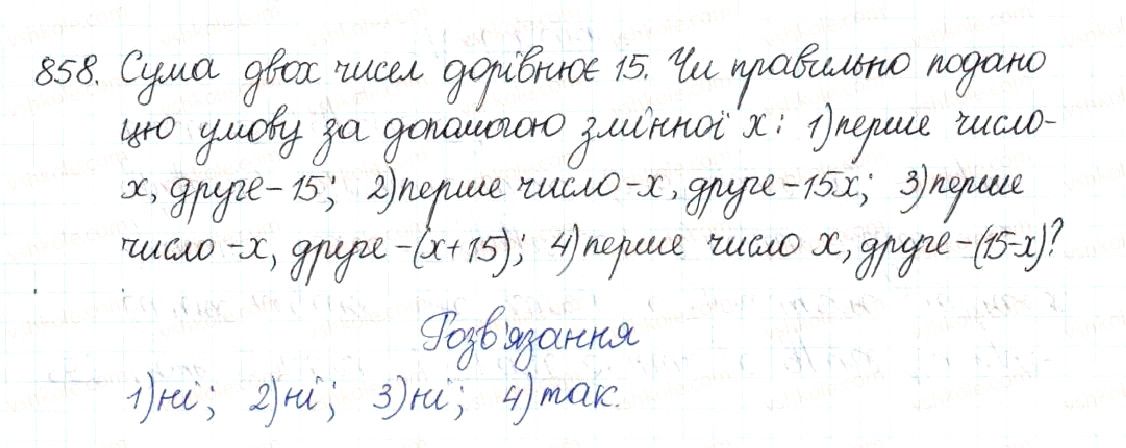 858. Сума двох чисел дорівнює 15. Чи правильно подано
цю умову за допомогою змінної x: 1) перше число-
x, друге - 15; 2) перше число - x, друге - 15x; 3) перше
число - x, друге - (x+15); 4) перше число x, друге - (15-x)?
Розв'язання
1) ні; 2) ні; 3) ні; 4) так.